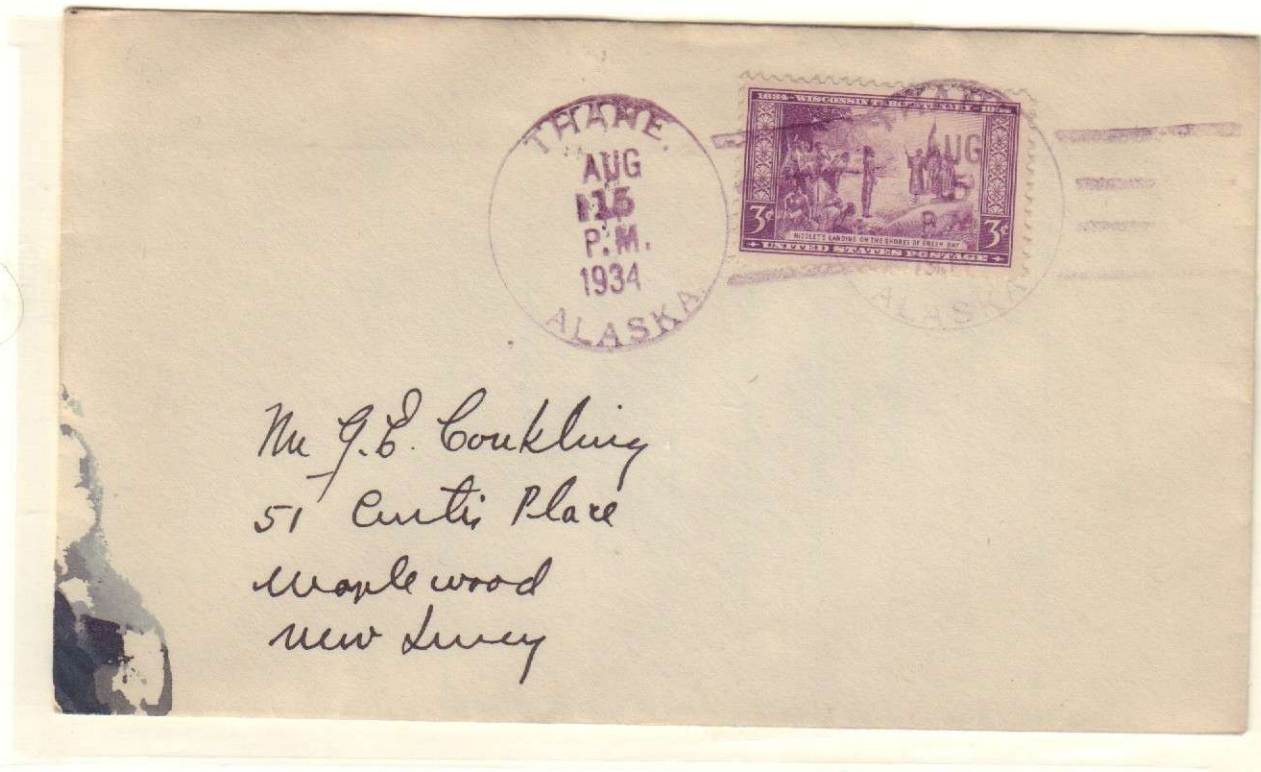 THANE.
AUG
15
P.M.
1934
ALASKA
1634-WISCONSIN TERCENTENARY-1934
3¢ 3¢
NICOLET'S LANDING ON THE SHORES OF GREEN BAY
UNITED STATES POSTAGE
AUG
15
P.M.
ALASKA
Mr J. E. Conkling
51 Curtis Place
Maplewood
New Jersey